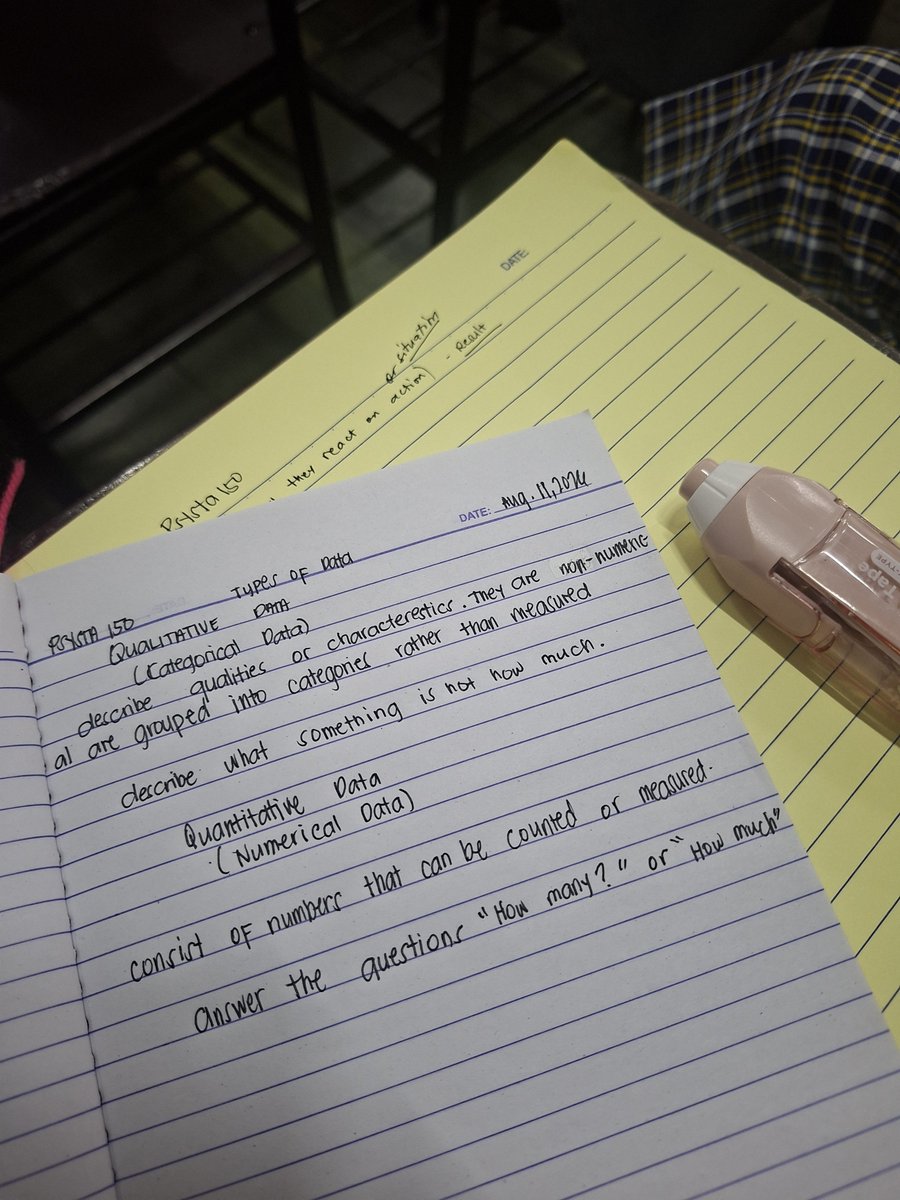 DATE:
or situation
they react on action) - Result
PSYSTA 150
DATE: Aug. 11, 2024
PSYSTA 150 Types of Data
QUALITATIVE DATA
(Categorical Data)
describe qualities or characterestics. They are non-numeric
al are grouped into categories rather than measured
describe what something is not how much.
Quantitative Data
(Numerical Data)
consist of numbers that can be counted or measured.
answer the questions "How many?" or "How much"
Tape